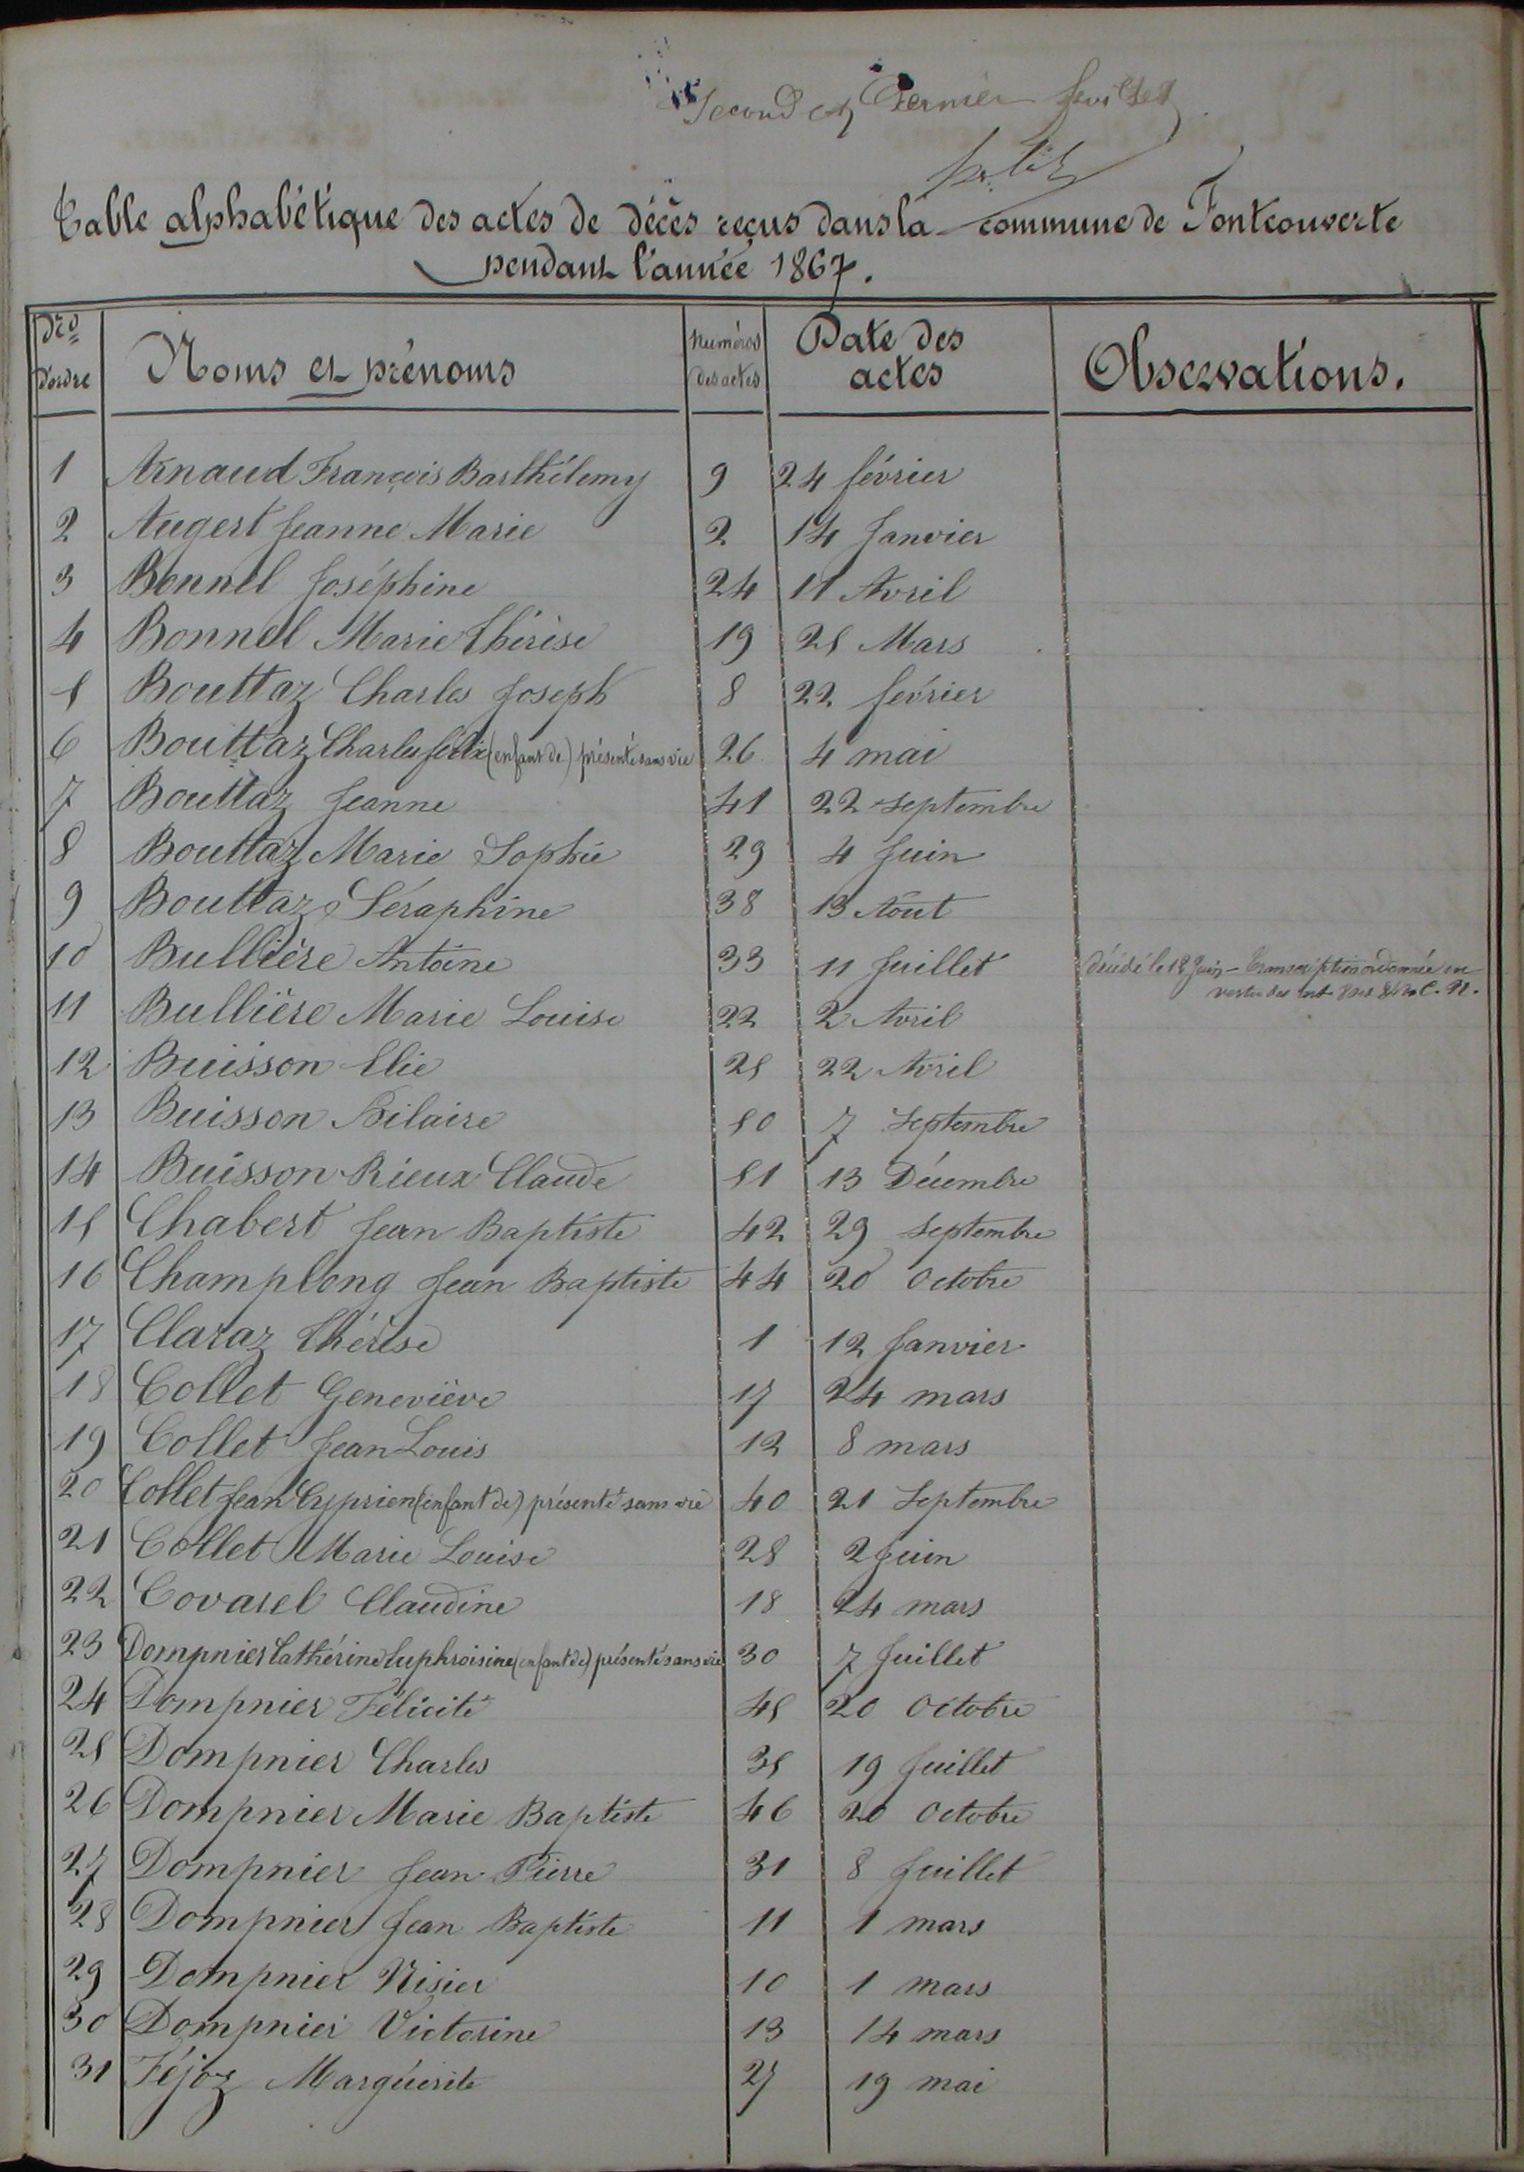 Second et Dernier feuillet
Table alphabétique des actes de décès reçus dans la commune de Fontcouverte
pendant l'année 1867.
Nro d'ordre Noms et prénoms Numéros des actes Date des actes Observations.
1 Arnaud François Barthélemy 9 24 février
2 Augert Jeanne Marie 2 14 Janvier
3 Bonnel Joséphine 24 11 Avril
4 Bonnel Marie Thérèse 19 25 Mars
5 Bouttaz Charles Joseph 8 22 février
6 Bouttaz Charles felix (enfant de) présenté sans vie 26 4 mai
7 Bouttaz Jeanne 41 22 septembre
8 Bouttaz Marie Sophie 29 4 Juin
9 Bouttaz Séraphine 38 13 Août
10 Bullière Antoine 33 11 Juillet décédé le 18 Juin - Transcription ordonnée en
vertu des art. C. N.
11 Bullière Marie Louise 22 2 Avril
12 Buisson Elie 25 22 Avril
13 Buisson Hilaire 50 7 Septembre
14 Buisson-Rieux Claude 51 13 Décembre
15 Chabert Jean Baptiste 42 29 Septembre
16 Champlong Jean Baptiste 44 20 Octobre
17 Claraz Thérèse 1 12 Janvier
18 Collet Geneviève 17 24 mars
19 Collet Jean Louis 12 8 mars
20 Collet Jean Cyprien (enfant de) présenté sans vie 40 21 Septembre
21 Collet Marie Louise 28 2 Juin
22 Covarel Claudine 18 24 mars
23 Dompnier Cathérine Euphroisine (enfant de) présenté sans vie 30 7 Juillet
24 Dompnier Félicité 45 20 Octobre
25 Dompnier Charles 35 19 Juillet
26 Dompnier Marie Baptiste 46 20 Octobre
27 Dompnier Jean-Pierre 31 8 Juillet
28 Dompnier Jean Baptiste 11 1 mars
29 Dompnier Nisier 10 1 mars
30 Dompnier Victorine 13 14 mars
31 Féjoz Marguérite 27 19 mai